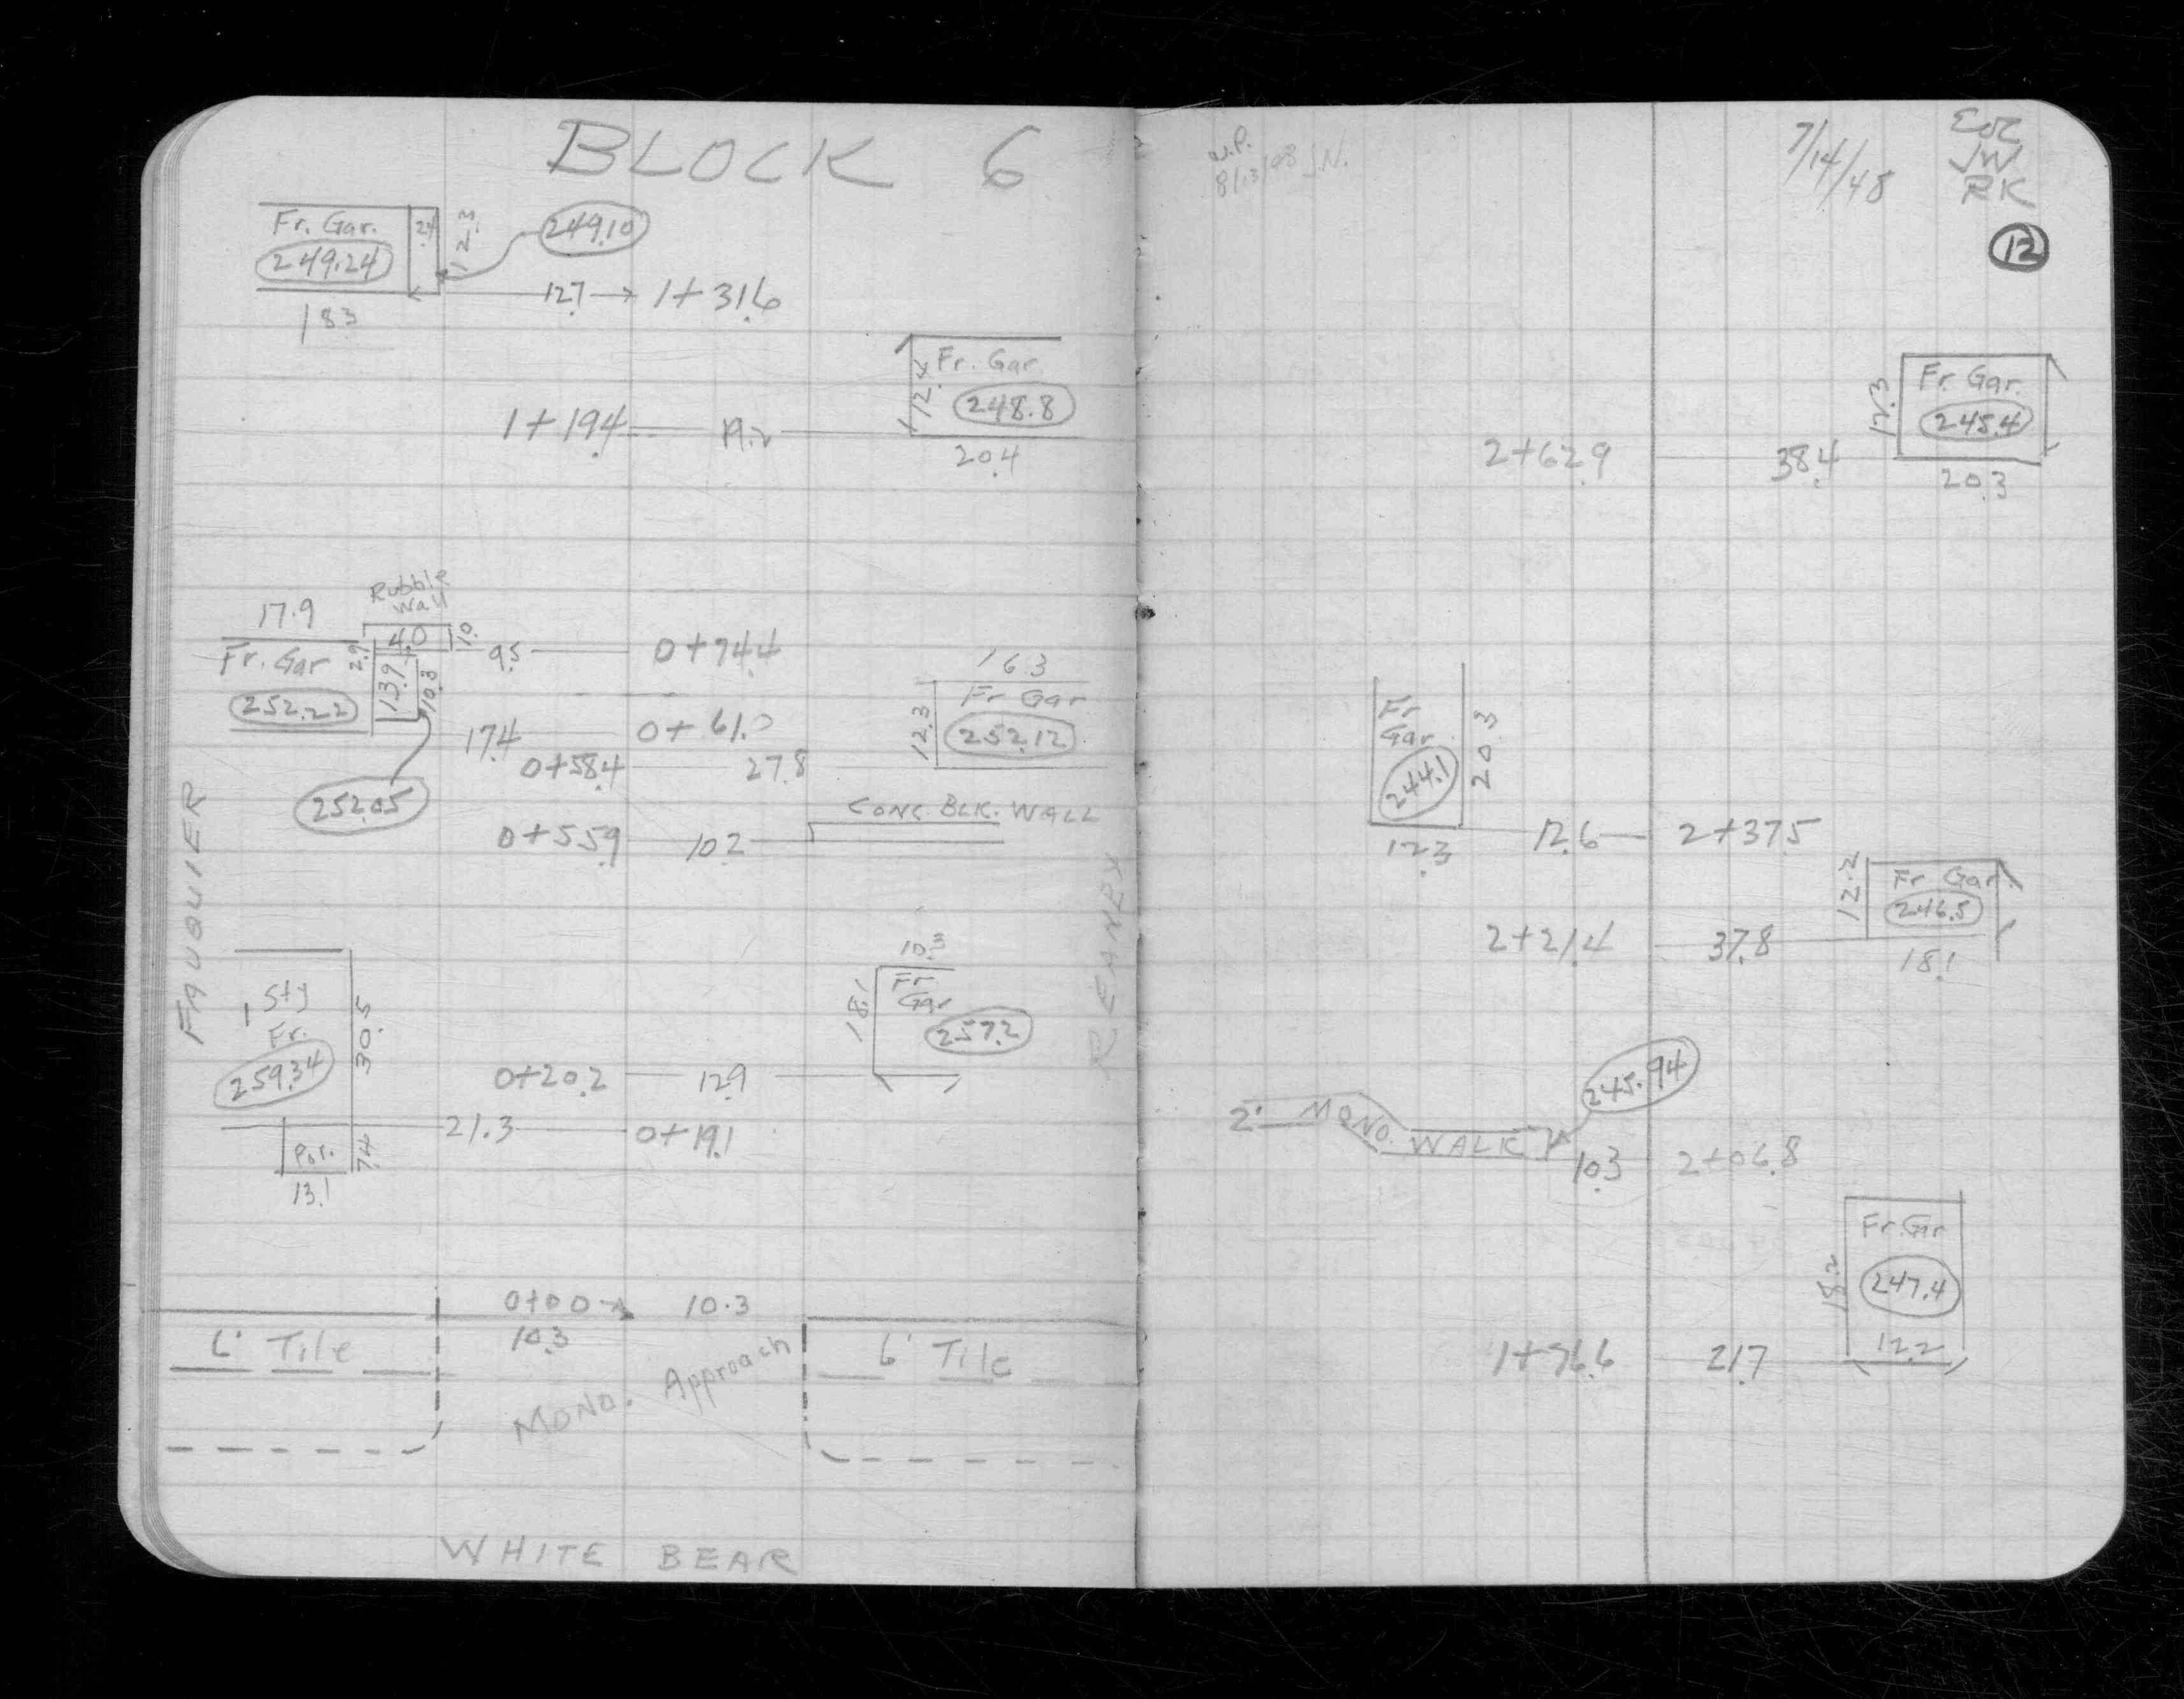 BLOCK 6
Fr. Gar. 2.4 12.3 249.10
249.24
12.7 1+31.6
18.3
Fr. Gar.
12.4
248.8
1+19.4 19.2
20.4
Rubble
Wall
17.9
4.0 1.0
9.5 0+74.4
Fr. Gar 2.9
13.9 10.8
252.22
16.3
Fr Gar
12.3
252.12
17.4 0+61.0
0+58.4 27.8
252.05
CONC. BLK. WALL
0+55.9 10.2
FAUQUIER
REANEY
10.3
1 Sty
Fr.
30.5
259.34
Fr
Gar
18.1
257.2
0+20.2 12.9
21.3 0+19.1
Por. 7.4
13.1
0+00 10.3
10.3
6' Tile
Mono. Approach
6' Tile
WHITE BEAR
W.P.
8/13/48 J.N.
7/14/48
JW
RK
12
Fr. Gar.
17.3
245.4
2+62.9 38.4
20.3
Fr
Gar
20.3
244.1
12.6 2+37.5
12.3
12.2
Fr Gar.
246.5
2+21.4 37.8
18.1
245.94
2' MONO. WALK
10.3 2+06.8
Fr. Gar
18.2
247.4
12.2
1+76.6 21.7